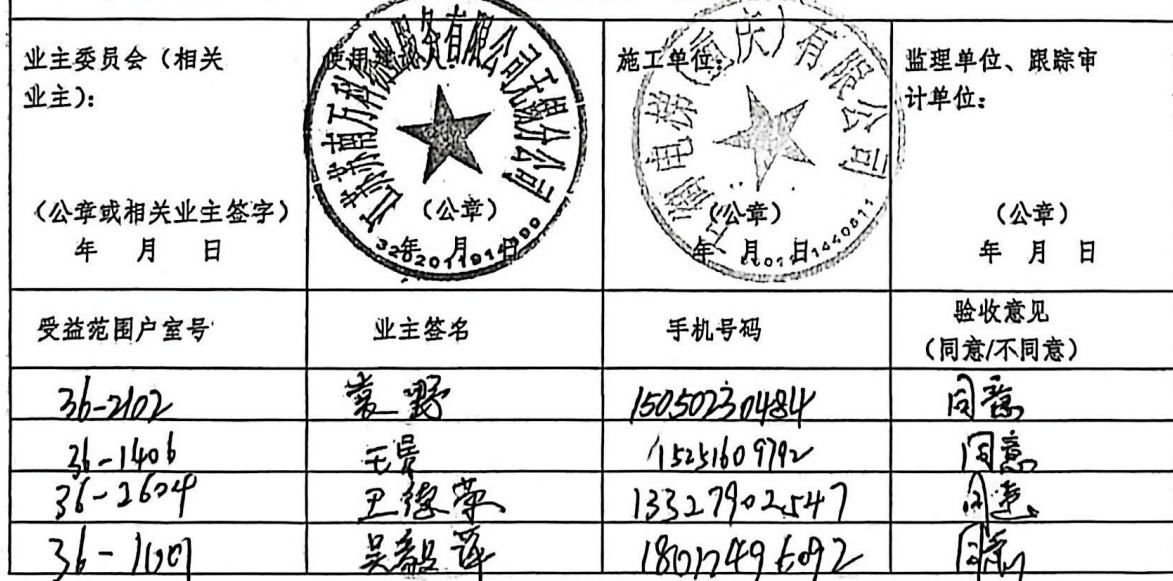 业主委员会（相关
业主）：
（公章或相关业主签字）
年 月 日
江苏苏南万科物业服务有限公司无锡分公司
（公章）
年 月 日
施工单位：
电梯（重庆）有限公司
（公章）
年 月 日
监理单位、跟踪审
计单位：
（公章）
年 月 日
受益范围户室号 业主签名 手机号码 验收意见
（同意/不同意）
36-2102 袁野 15050230484 同意
36-1406 王景 15251609792 同意
36-2604 德荣 13327902547 同意
吴 萍 同意